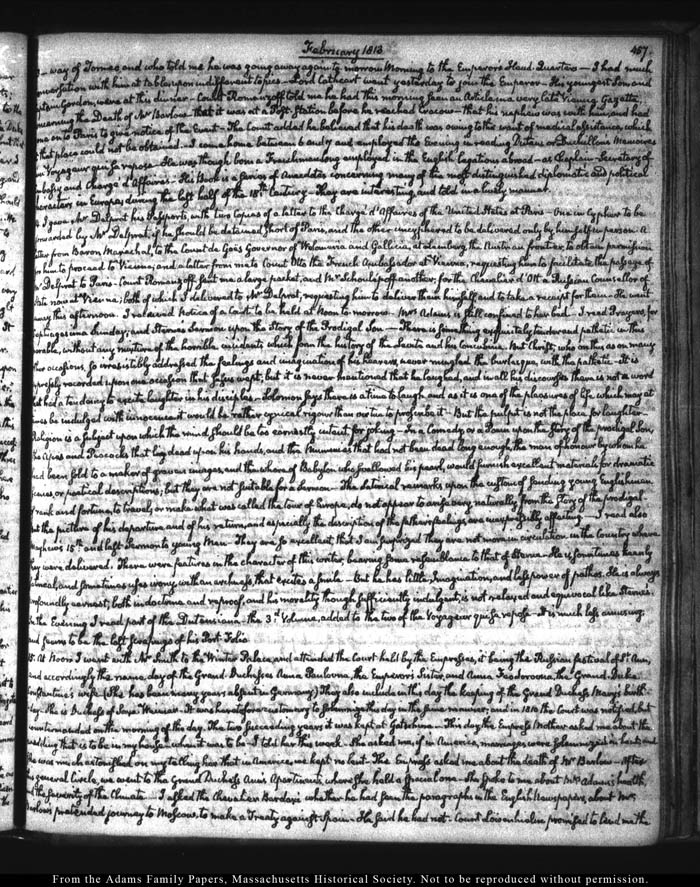 February 1813
457.
way of Tornea; and who told me he was going away again to-morrow Morning to the Emperor's Head-Quarters — I had much
conversation with him at table, upon indifferent topics — Lord Cathcart went yesterday to join the Emperor — His youngest Son and
Gordon, were at this dinner — Count Romanzoff told me he had this morning seen an Article in a very late Vienna Gazette,
the Death of Mr Barlow — that it was at a Post-Station before he reached Cracow — that his nephew was with him, and had
on to Paris to give notice of the Event — The Count added he believed that his death was owing to the want of medical assistance, which
that place could not be obtained — I came home between 6 and 7 and employed the Evening in reading Dutens or Duchillon's Memoires
Voyageur qui se repose — He was though born a Frenchman long employed in the English legations abroad — as Chaplain — Secretary of
and Chargé d'Affaires — His Book is a series of Anecdotes concerning many of the most distinguished diplomatic and political
characters in Europe, during the last half of the 18th Century — They are interesting, and told in a lively manner.
I gave Mr Delprat his Passports, with two copies of a letter to the Chargé d'Affaires of the United States at Paris — One in cypher to be
forwarded by Mr Delprat, if he should be detained short of Paris, and the other uncyphered to be delivered only by himself in person. A
letter from Baron Marechal, to the Count de Goës Governor of Volomeria and Gallicia, at Lemberg, the Austrian frontier, to obtain permission
for him to proceed to Vienna; and a letter from me to Count Otto the French Ambassador at Vienna, requesting him to facilitate the passage of
Mr Delprat to Paris — Count Romanzoff sent me a large packet, and Mr another, for the Chevalier d'Ott a Russian Counsellor of
State now at Vienna; both of which I delivered to Mr Delprat, requesting him to deliver them himself and to take a receipt for them — He went
away this afternoon — I received Notice of a Court to be held at Noon to morrow. Mrs Adams is still confined to her bed — I read Prayers for
Septuagesima Sunday; and Sterne's Sermon upon the Story of the Prodigal Son — There is something exquisitely tender and pathetic in this
parable, without any mixture of the horrible incidents which form the history of the Levite and his Concubine. But Christ, who on this as on many
other occasions, so irresistibly addressed the feelings and imaginations of his hearers, never mingled the burlesque, with the pathetic — It is
expressly recorded upon one occasion that Jesus wept; but it is never mentioned that he laughed, and in all his discourses there is not a word
tending to excite laughter in his disciples — Solomon says there is a time to laugh and as it is one of the pleasures of life which may at
times be indulged with innocence it would be rather cynical rigour than virtue to proscribe it — But the pulpit is not the place for laughter —
Religion is a subject upon which the mind should be too earnestly intent for joking — In a Comedy or a Poem upon the Story of the prodigal Son,
the Apes and Peacocks that lay dead upon his hands, and the Mummies that had not been dead long enough, the man of honour by whom he
had been sold to a maker of graven images, and the whore of Babylon who swallowed his pearl, would furnish excellent materials for dramatic
scenes, or poetical descriptions; but they are not suitable for a Sermon — The satirical remarks upon the custom of sending young Englishmen
of rank and fortune, to travel, or make what was called the tour of Europe, do not appear to arise very naturally from the Story of the prodigal —
But the picture of his departure, and of his return, and especially the description of the father's feelings are inexpressibly affecting — I read also
15th and last Sermon to young Men — They are so excellent, that I am surprized they are not more in circulation in the Country where
they were delivered. There were features in the character of this writer, bearing some resemblance to that of Sterne — He is sometimes
and sometimes uses irony, with an archness that excites a smile — But he has little imagination, and less power of pathos. He is always
profoundly earnest, both in doctrine and reproof, and his morality though sufficiently indulgent, is not relaxed and equivocal like Sterne's.
In the Evening I read part of the Dutensiana — the 3d Volume, added to the two of the Voyageur qui se repose — It is much less amusing
and seems to be the last scrapings of his Port Folio
15. At Noon I went with Mr Smith to the Winter Palace, and attended the Court held by the Empresses, it being the Russian festival of St Ann,
and accordingly the name-day of the Grand Duchesses Anna Paulovna, the Emperor's Sister, and Anna Feodorovna, the Grand Duke
Constantine's wife (She has been many years absent in Germany) They also include in this day the keeping of the Grand Duchess Mary's birth-
day. She is Duchess of Saxe-Weimar. It was heretofore customary to solemnize this day in the same manner; and in 1810 the Court was notified, but
countermanded on the morning of the day. The two succeeding years it was kept at Gatschina. This day the Empress Mother asked me about the
wedding that is to be in my house — when it was to be — I told her this week. She asked me, if in America, marriages were solemnized in Lent; and
She was much astonished on my telling her that in America we kept no Lent. The Empress asked me about the death of Mr Barlow — After
the general Circle, we went to the Grand Duchess Ann's Apartments, where she held a special one — She spoke to me about Mrs Adams's health,
and the severity of the Climate — I asked the Chevalier Bardaxi whether he had seen the paragraphs in the English Newspapers, about Mr
Barlow's pretended journey to Moscow, to make a Treaty against Spain. He said he had not. Count Löwenhielm promised to lend me the
From the Adams Family Papers, Massachusetts Historical Society. Not to be reproduced without permission.